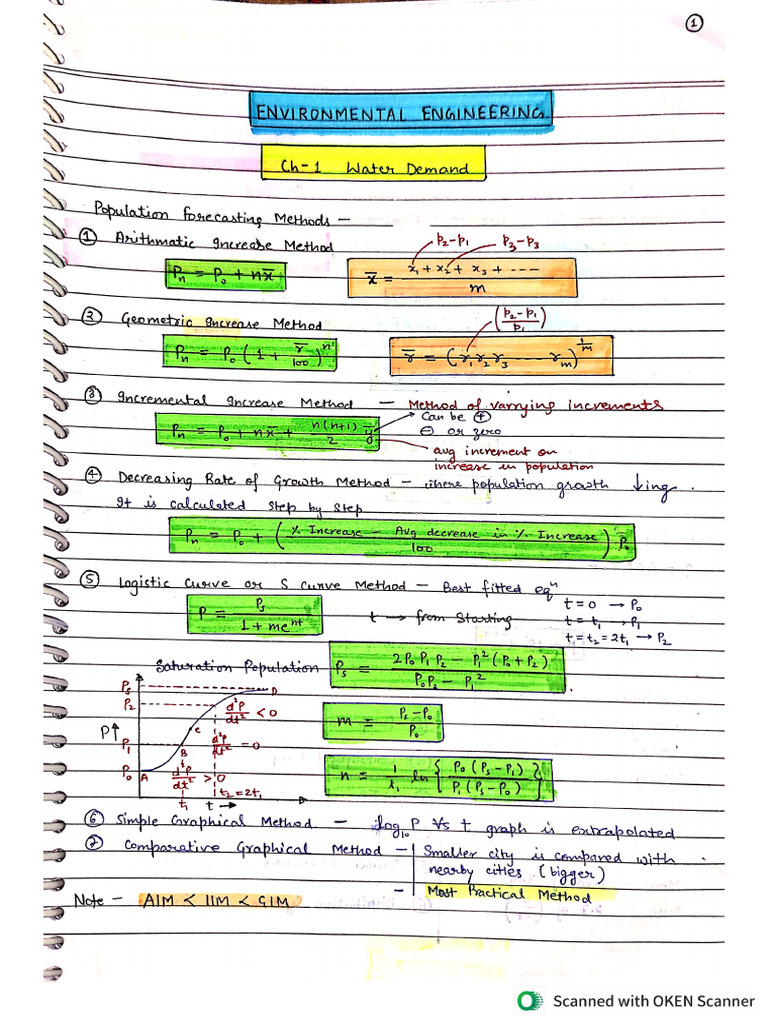 ①
ENVIRONMENTAL ENGINEERING
Ch-1 Water Demand
Population Forecasting Methods –
① Arithmatic Increase Method
P₂-P₁ P₃-P₃
Pₙ = P₀ + nx̄
x̄ = (x₁ + x₂ + x₃ + ---) / m
② Geometric Increase Method
((P₂-P₁)/P₁)
Pₙ = P₀ (1 + r̄/100)ⁿ
r̄ = (r₁ r₂ r₃ ---- rₘ)^(1/m)
③ Incremental Increase Method – Method of varrying increments
Pₙ = P₀ + nx̄ + (n(n+1)/2) ȳ
Can be ⊕
⊖ or zero
avg increment on
increase in population
④ Decreasing Rate of Growth Method – where population growth ↓ing.
It is calculated step by step
Pₙ = P₀ + ((% Increase – Avg decrease in % Increase)/100) P₀
⑤ Logistic Curve or S Curve Method – Best fitted eqⁿ
P = Pₛ / (1 + me^(nt))
t → from Starting
t = 0 → P₀
t = t₁ → P₁
t = t₂ = 2t₁ → P₂
Saturation Population Pₛ = (2P₀P₁P₂ – P₁²(P₀+P₂)) / (P₀P₂ – P₁²)
m = (Pₛ-P₀)/P₀
n = (1/t₁) ln {P₀(Pₛ-P₁) / P₁(Pₛ-P₀)}
Pₛ
P₂
P↑
P₁
P₀
A
B
C
D
d²P/dt² < 0
d²P/dt² = 0
d²P/dt² > 0
t₁ t → t₂=2t₁
⑥ Simple Graphical Method – log₁₀ P Vs t graph is extrapolated
⑦ Comparative Graphical Method – Smaller city is compared with
nearby cities (bigger)
– Most Practical Method
Note – AIM < IIM < GIM
Scanned with OKEN Scanner